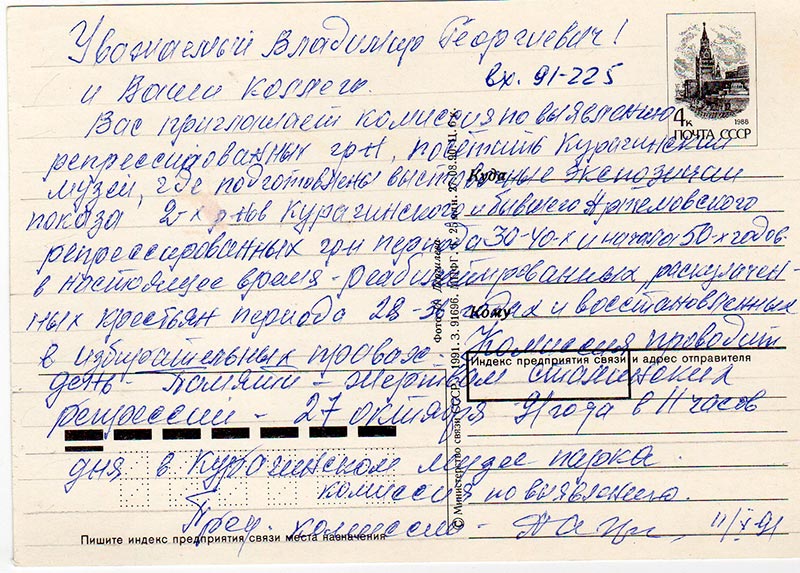 Уважаемый Владимир Георгиевич!
и Ваши коллеги.
вх. 91-225
4к 1988
ПОЧТА СССР
Вас приглашает комиссия по выявлению
репрессированных гр-н, посетить Курагинский
музей, где подготовлены выставочные экспозиции
показа 2-х р-нов Курагинского и бывшего Артемовского
репрессированных гр-н периода 30-40-х и начала 50-х годов.
в настоящее время - реабилитированных, раскулачен-
нных крестьян периода 28- годах и восстановленных
в избирательных правах. Комиссия проводит
день - Памяти - жертвам сталинских
репрессий - 27 октября 91 года в 11 часов
дня в Курагинском музее парка.
комиссия по выявлению.
Пред. комиссии - 11/X 91
Куда
Кому
Индекс предприятия связи и адрес отправителя
Пишите индекс предприятия связи места назначения
© Министерство связи СССР. 1991. З. 91696. ППФГ.
Фото